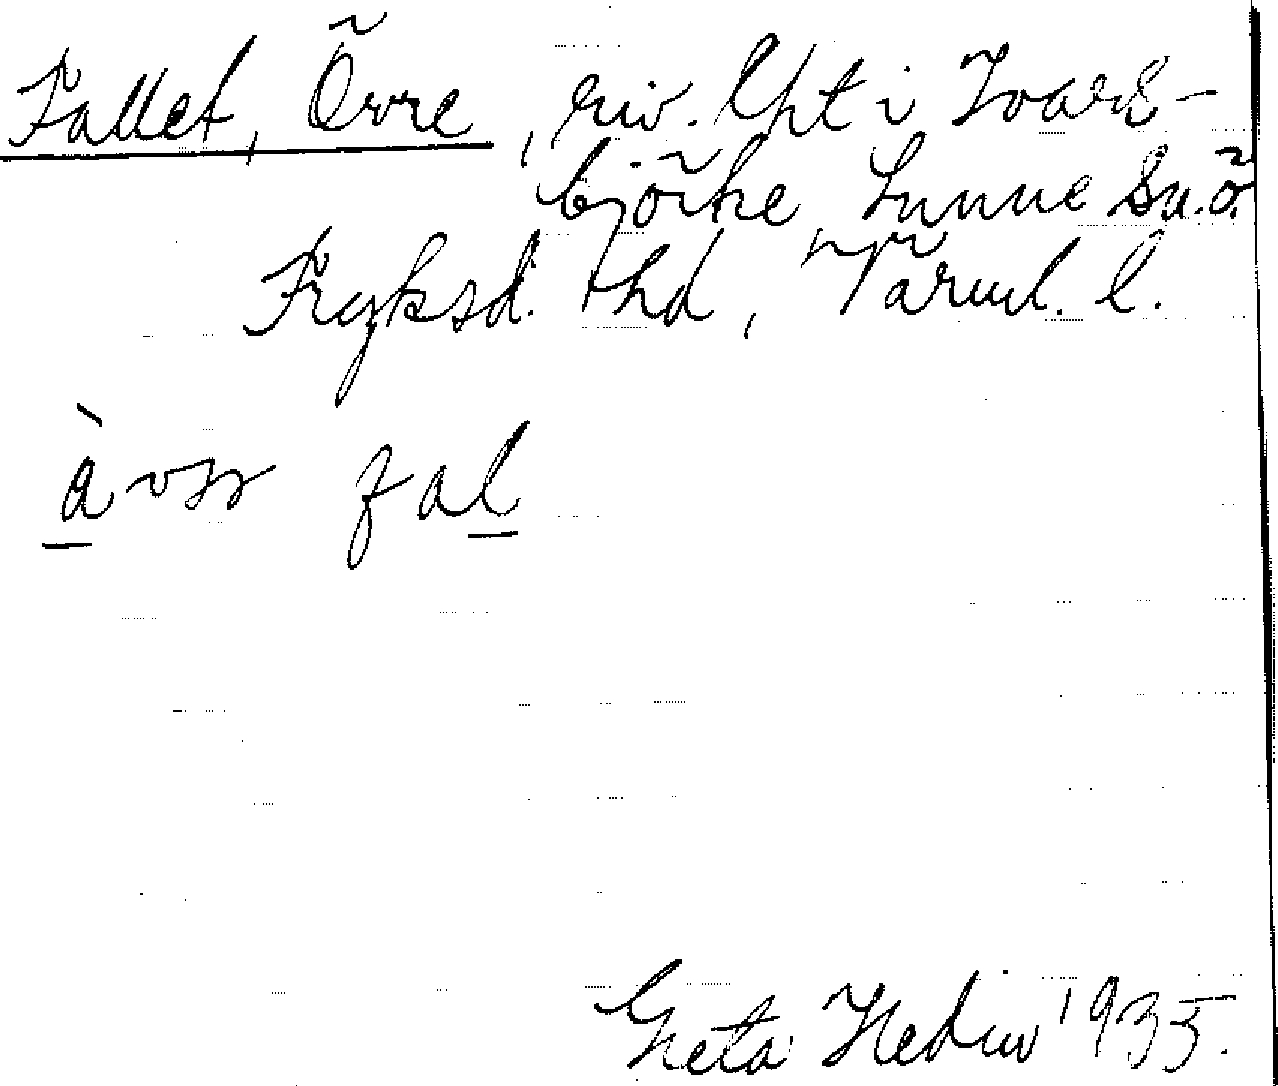 Fallet, Övre, riv. lht i Ivars-
björke, Lysvik sn. Ö.
Fryksd. hd, Värml. l.
àvsr fal
Greta Hedin 1935.